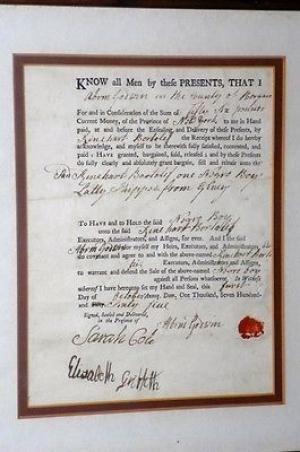 KNOW all Men by these PRESENTS, THAT I
Abrm Godwin in the County of Bergen
For and in Consideration of the Sum of fifty six pounds
Current Money, of the Province of New York to me in Hand
paid, at and before the Ensealing and Delivery of these Presents, by
Rinehart Bartolf the Receipt whereof I do hereby
acknowledge, and myself to be therewith fully satisfied, contented, and
paid: HAVE granted, bargained, sold, released; and by these Presents
do fully clearly and absolutely grant bargain, sell and release unto the
Said Rinehart Bartolf one Negro Boy
Lately from
TO HAVE and to HOLD the said Negro Boy
unto the said Rinehart Bartolf
Executors, Administrators, and Assigns, for ever. And I the said
Abrm Godwin myself my Heirs, Executors, and Administrators, do
do covenant and agree to and with the above-named Rinehart Bartolf
his Executors, Administrators and Assigns,
to warrant and defend the Sale of the above-named Negro boy
against all Persons whatsoever. In Witness
whereof I have hereunto set my Hand and Seal, this first
Day of October Annoq; Dom. One Thousand, Seven Hundred
and Sixty
Signed, Sealed and Delivered,
in the Presence of
Abrm Godwin
Sarah Cole
Elisabeth Griffith